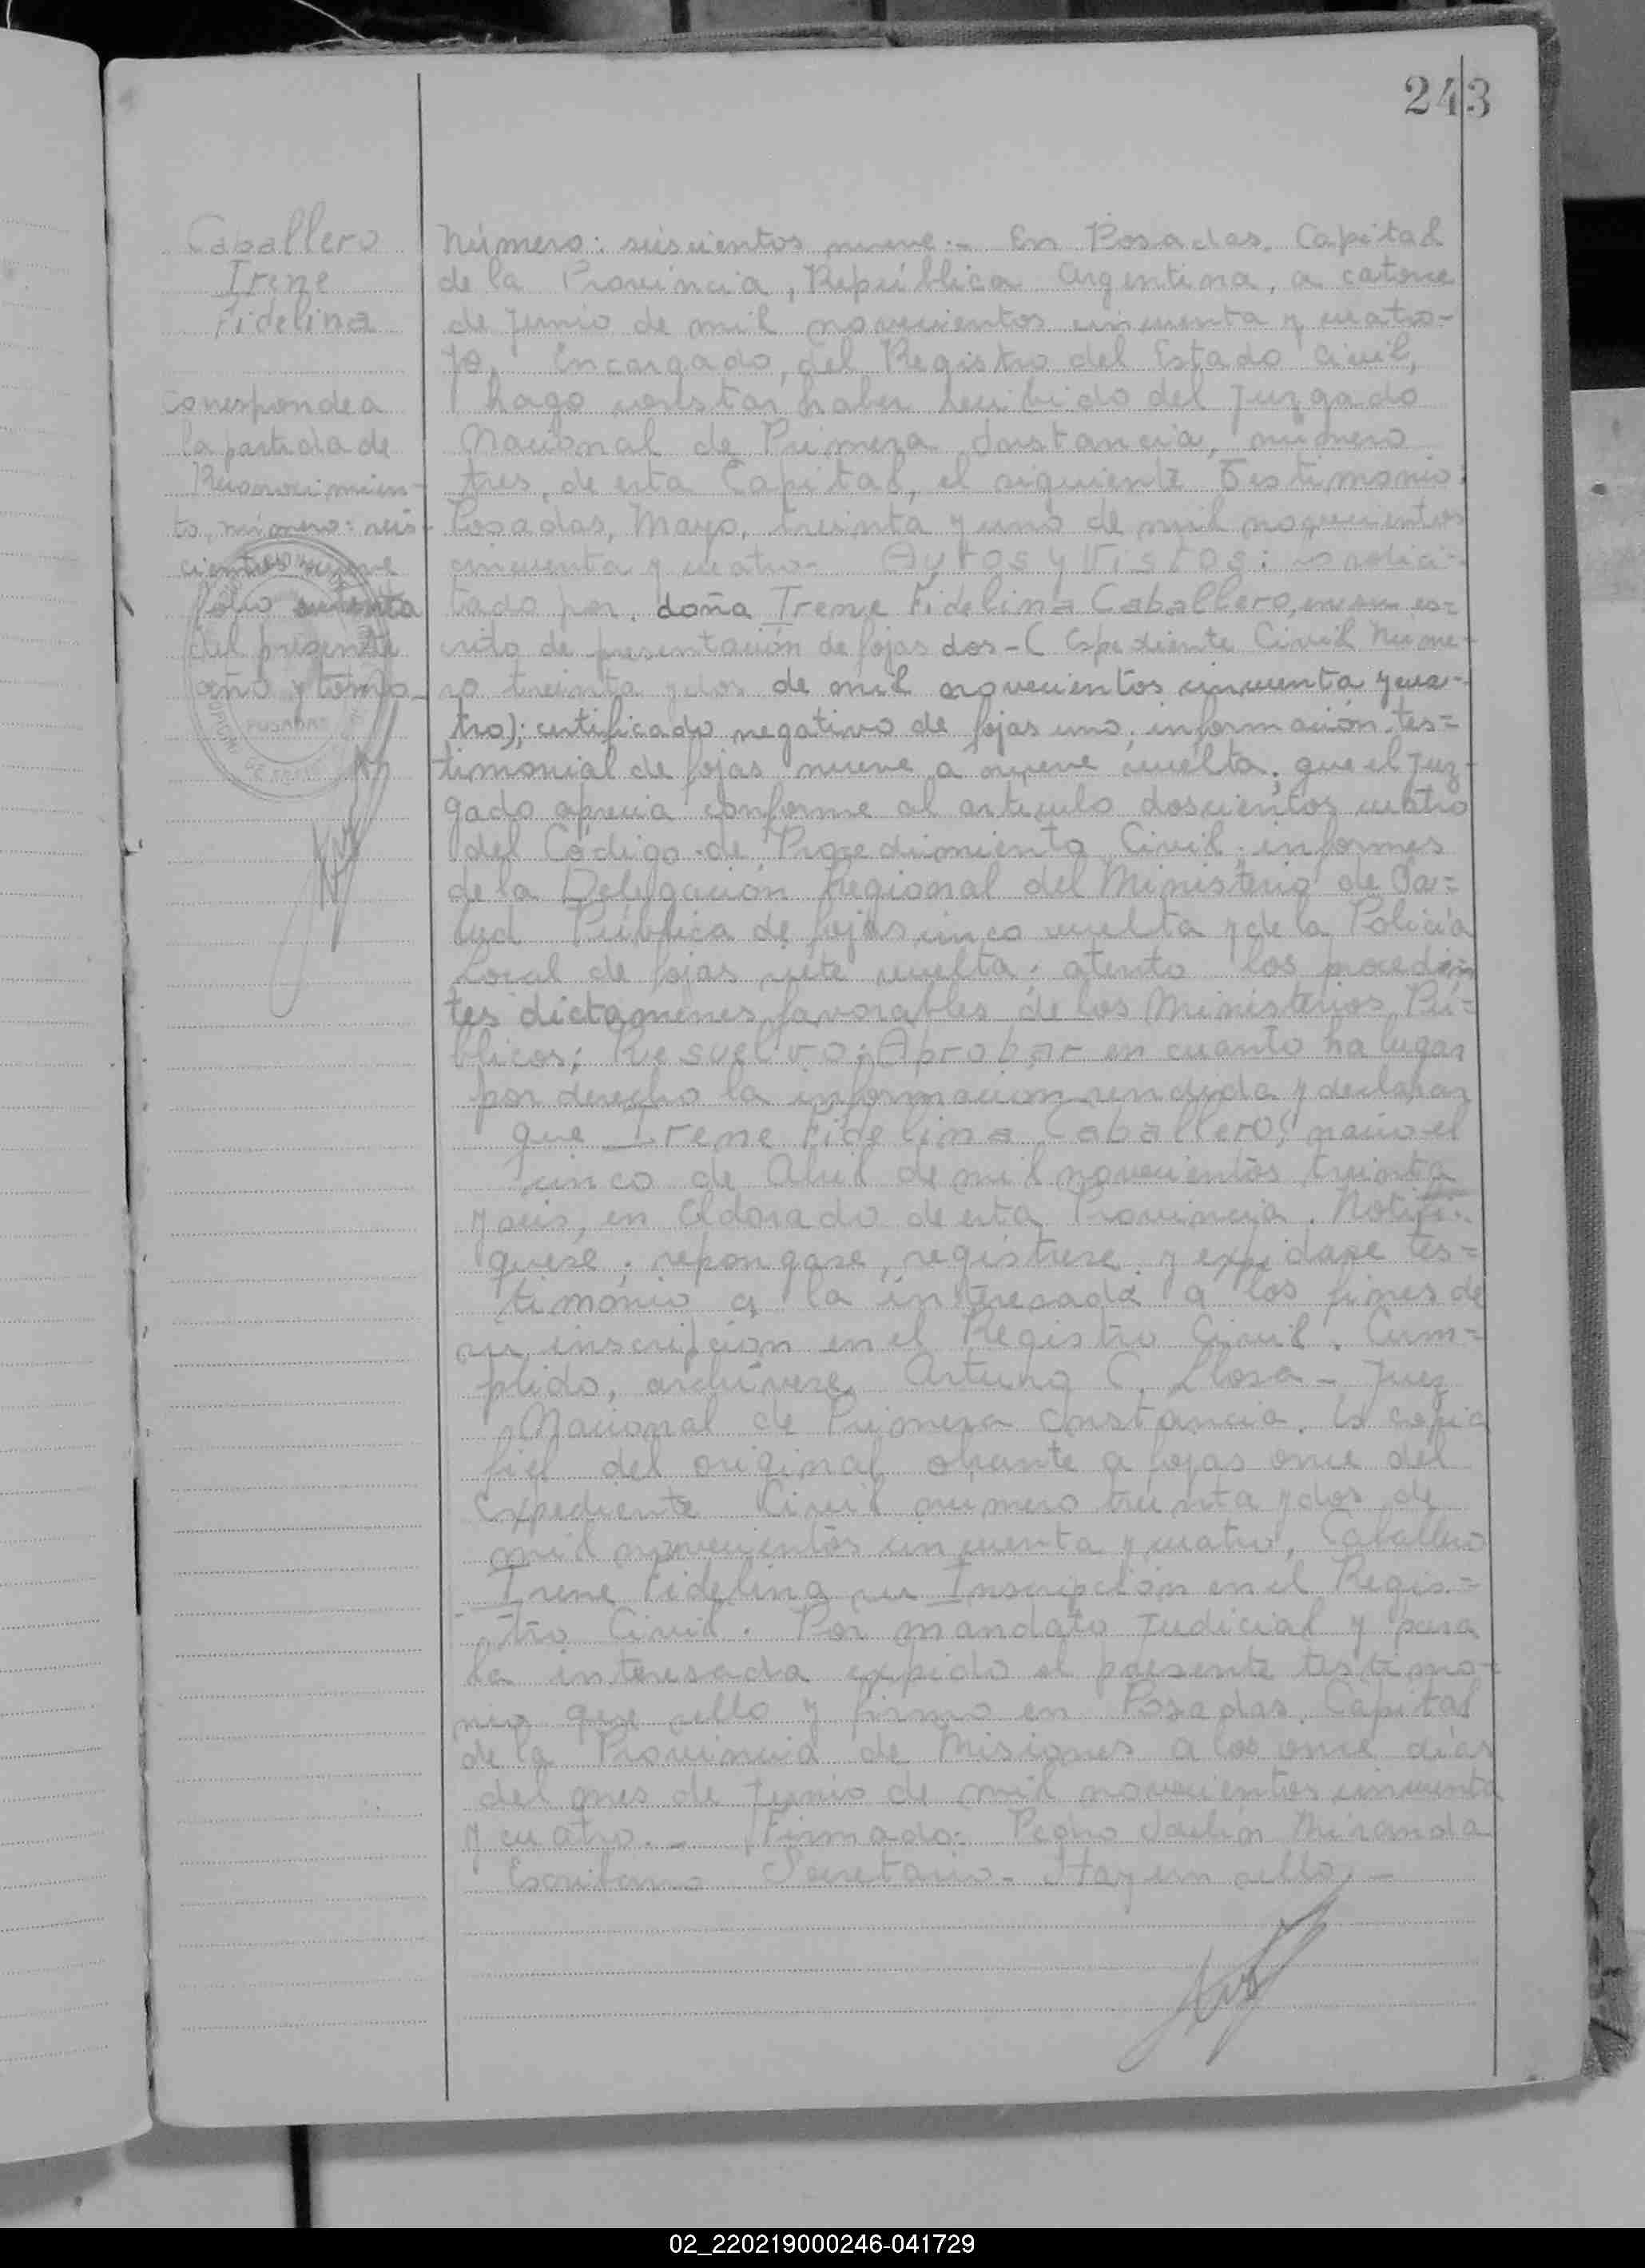 243
Caballero
Irene
Fidelina
Corresponde a
la partida de
Reconocimien-
to, número: seis-
cientos nueve
folio
del presente
año y tomo
POSADAS
Número: seiscientos nueve.- En Posadas, Capital
de la Provincia, República Argentina, a catorce
de Junio de mil novecientos cincuenta y cuatro-
Yo, Encargado, del Registro del Estado Civil,
hago constar haber recibido del Juzgado
Nacional de Primera Instancia, número
tres, de esta Capital, el siguiente Testimonio:
Posadas, Mayo, treinta y uno de mil novecientos
cincuenta y cuatro- Autos y Vistos: lo solici-
tado por, doña Irene Fidelina Caballero, en su es-
crito de presentación de fojas dos-(Expediente Civil Núme-
ro treinta y dos de mil novecientos cincuenta y cua-
tro); certificado negativo de fojas uno; información tes=
timonial de fojas nueve a nueve vuelta; que el Juz-
gado aprecia conforme al artículo doscientos cuatro
del Código de Procedimiento Civil; informes
de la Delegación Regional del Ministerio de Sa=
lud Pública de fojas cinco vuelta y de la Policía
Local de fojas siete vuelta; atento los proceden
tes dictamenes favorables de los Ministerios Pú=
blicos; Resuelvo: Aprobar en cuanto ha lugar
por derecho la información rendida y declarar
que Irene Fidelina Caballero, nació el
cinco de Abril de mil novecientos treinta
y seis, en Eldorado de esta Provincia. Notifi-
quese; repongase, registrese y expidase tes=
timonio a la interesada a los fines de
su inscripción en el Registro Civil. Cum=
plido, archívese, Arturo C. Llosa - Juez
Nacional de Primera Instancia. Es copia
fiel del original obrante a fojas once del
Expediente Civil número treinta y dos de
mil novecientos cincuenta y cuatro, Caballero
Irene Fidelina su Inscripción en el Regis=
tro Civil. Por mandato Judicial y para
la interesada expido el presente testimo-
nio que sello y firmo en Posadas, Capital
de la Provincia de Misiones a los once días
del mes de Junio de mil novecientos cincuenta
y cuatro.- Firmado: Pedro Miranda
Escribano Secretario- Hay un sello.-
02_220219000246-041729